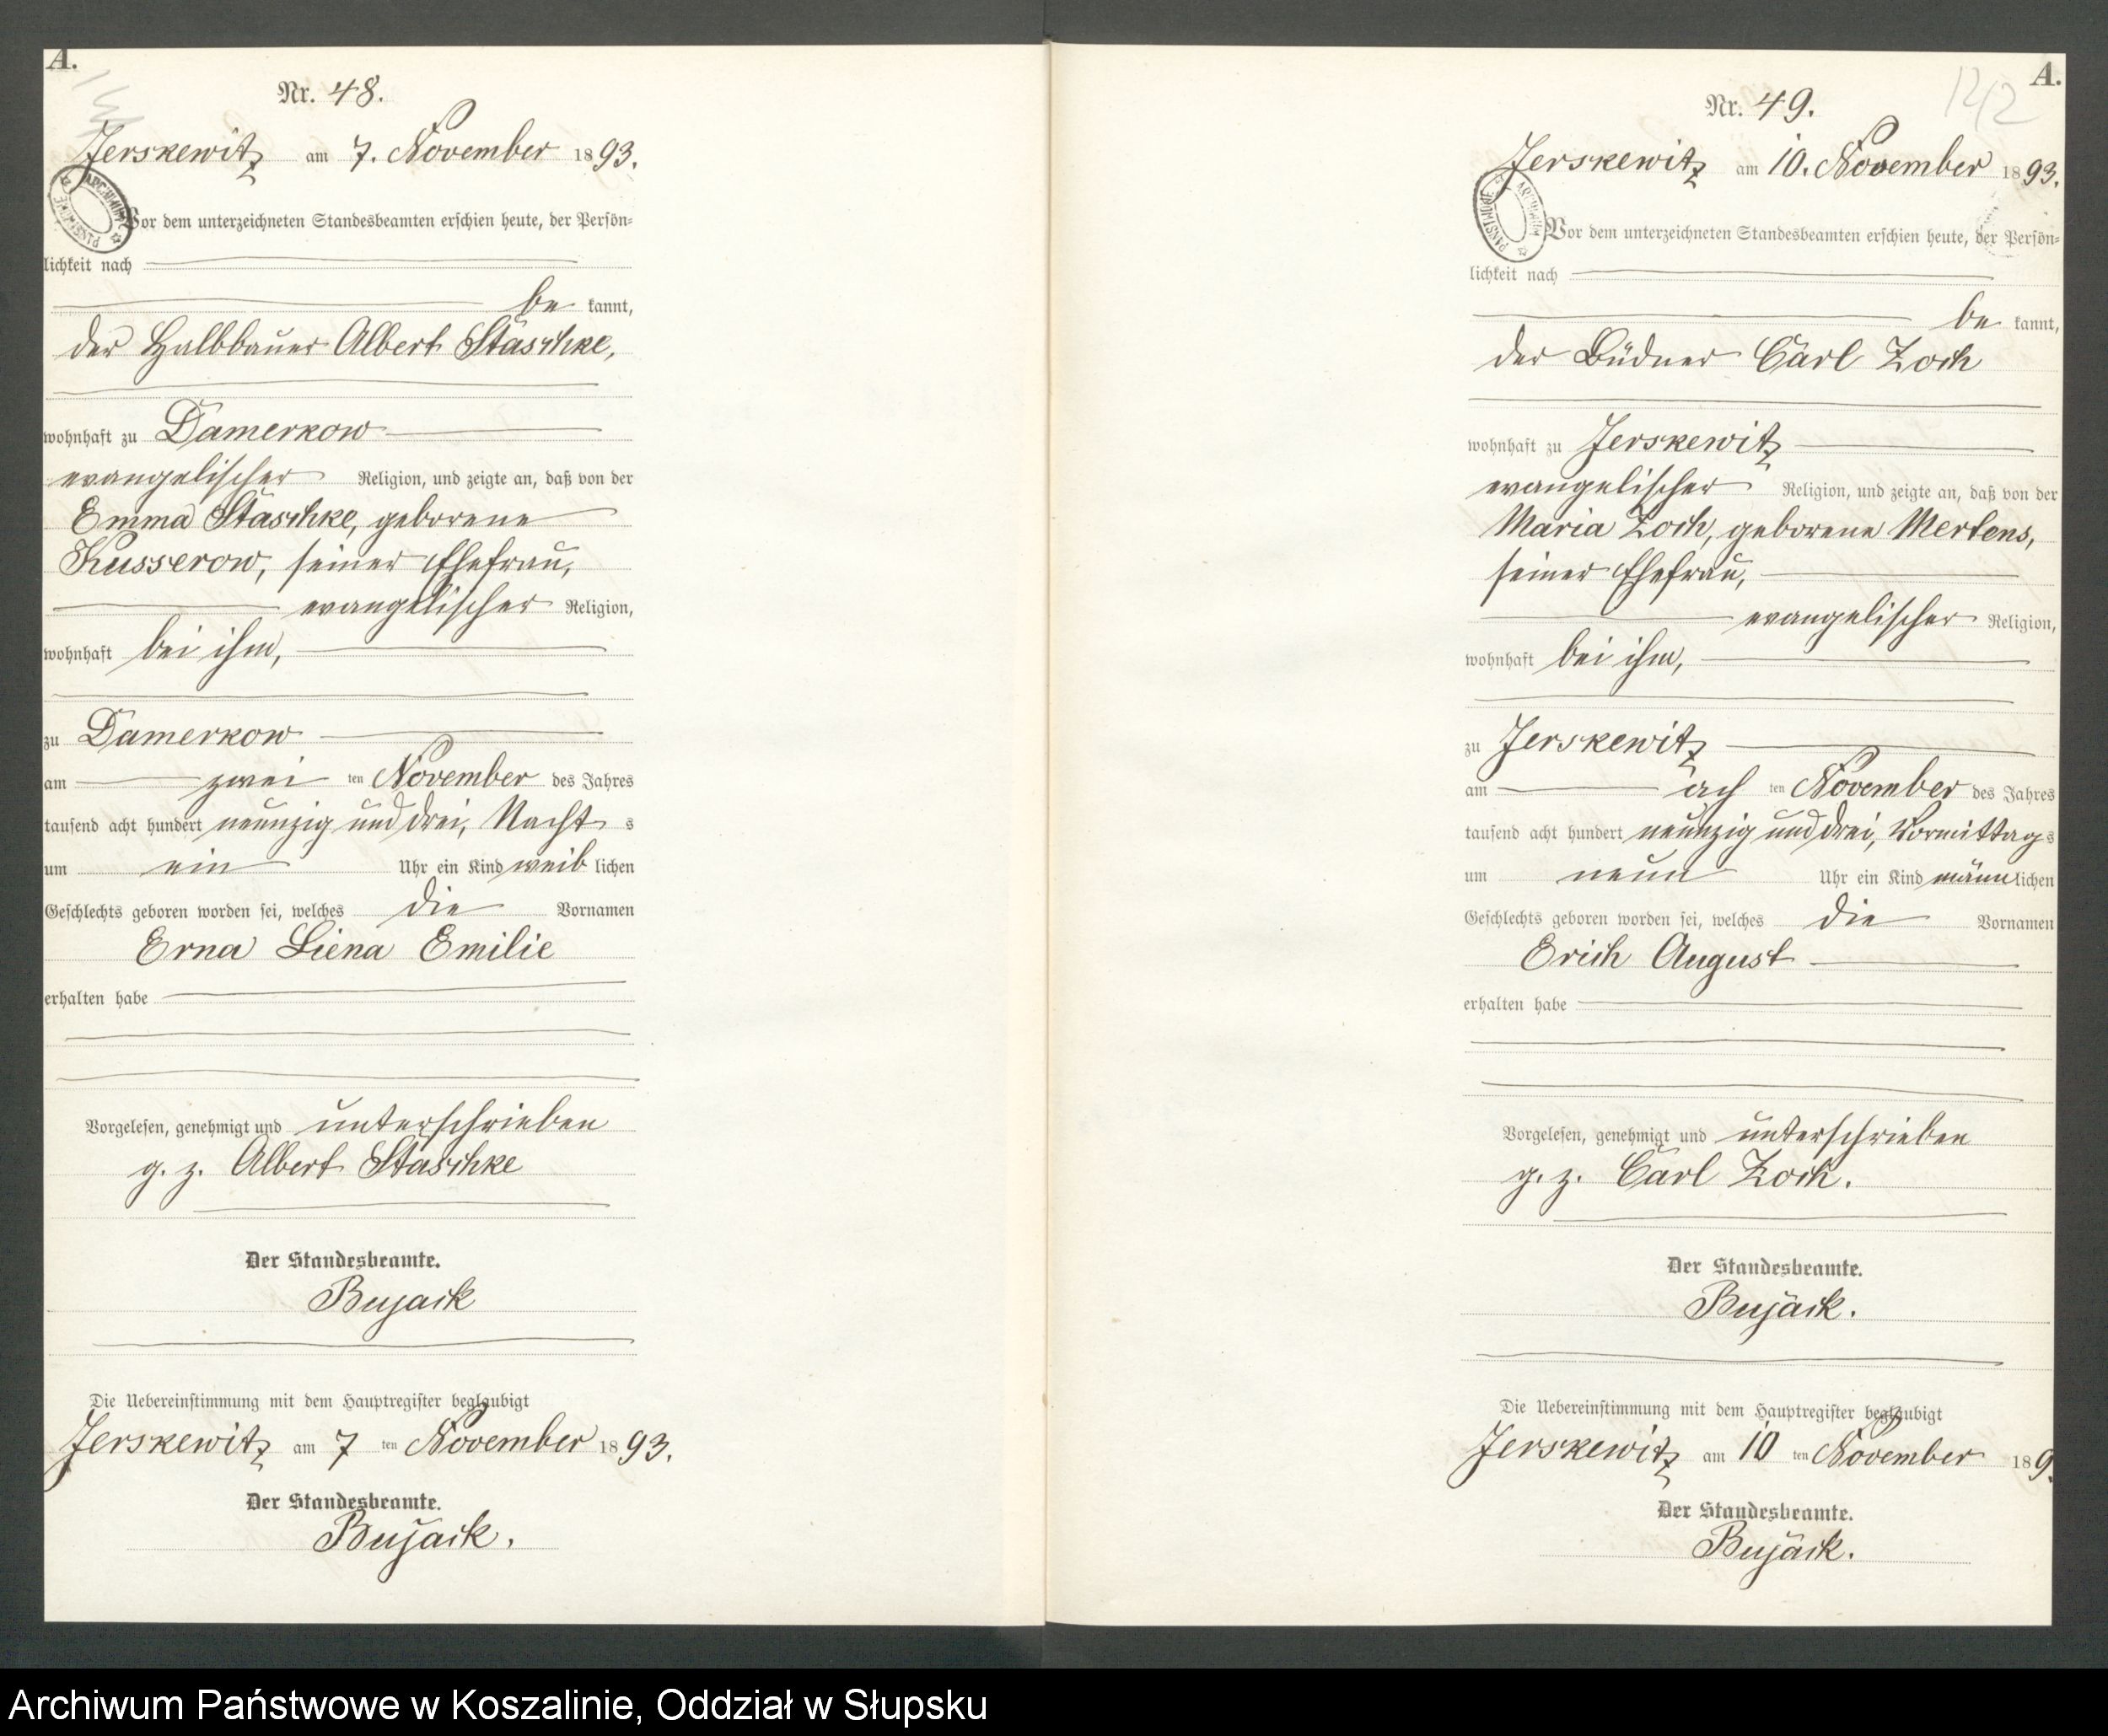 A.
Nr. 48.
Jerskewitz am 7. November 1893.
Vor dem unterzeichneten Standesbeamten erschien heute, der Persön=
lichkeit nach
be kannt,
der Halbbauer Albert Staschke,
wohnhaft zu Damerkow
evangelischer Religion, und zeigte an, daß von der
Emma Staschke, geborene
Kusserow, seiner Ehefrau,
evangelischer Religion,
wohnhaft bei ihm,
zu Damerkow
am zwei ten November des Jahres
tausend acht hundert neunzig und drei, Nacht s
um ein Uhr ein Kind weib lichen
Geschlechts geboren worden sei, welches die Vornamen
Erna Liena Emilie
erhalten habe
Vorgelesen, genehmigt und unterschrieben
g. z. Albert Staschke
Der Standesbeamte.
Bujack
Die Uebereinstimmung mit dem Hauptregister beglaubigt
Jerskewitz am 7 ten November 1893.
Der Standesbeamte.
Bujack.
A.
142
Nr. 49.
Jerskewitz am 10. November 1893.
Vor dem unterzeichneten Standesbeamten erschien heute, der Persön=
lichkeit nach
be kannt,
der Büdner Carl Zoch
wohnhaft zu Jerskewitz
evangelischer Religion, und zeigte an, daß von der
Maria Zoch, geborene Mertens,
seiner Ehefrau,
evangelischer Religion,
wohnhaft bei ihm,
zu Jerskewitz
am ach ten November des Jahres
tausend acht hundert neunzig und drei, Vormittag s
um neun Uhr ein Kind männ lichen
Geschlechts geboren worden sei, welches die Vornamen
Erich August
erhalten habe
Vorgelesen, genehmigt und unterschrieben
g. z. Carl Zoch.
Der Standesbeamte.
Bujack.
Die Uebereinstimmung mit dem Hauptregister beglaubigt
Jerskewitz am 10 ten November 189
Der Standesbeamte.
Bujack.
Archiwum Państwowe w Koszalinie, Oddział w Słupsku